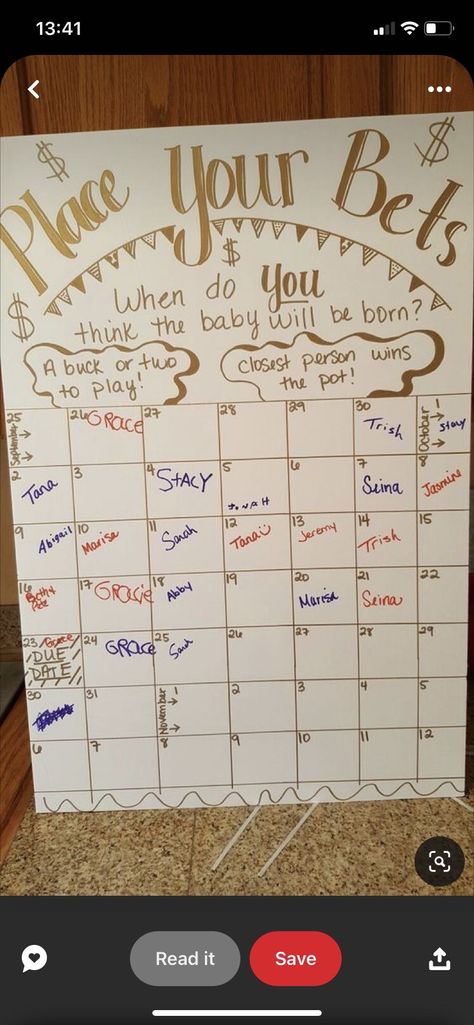 13:41
$ $
Place Your Bets
$
$
When do YOU
think the baby will be born?
A buck or two
to play!
closest person wins
the pot!
25 September 26 GRACE 27 28 29 30 Trish October 1 stacy
2 Tana 3 4 STACY 5 6 7 Seina 8 Jasmine
9 Abigail 10 Marisa 11 Sarah 12 Tana 13 Jeremy 14 Trish 15
16 Pete 17 GRACIE 18 Abby 19 20 Marisa 21 Seina 22
23 Grace DUE DATE 24 GRACE 25 Sarah 26 27 28 29
30 31 November 1 2 3 4 5
6 7 8 9 10 11 12
Read it
Save